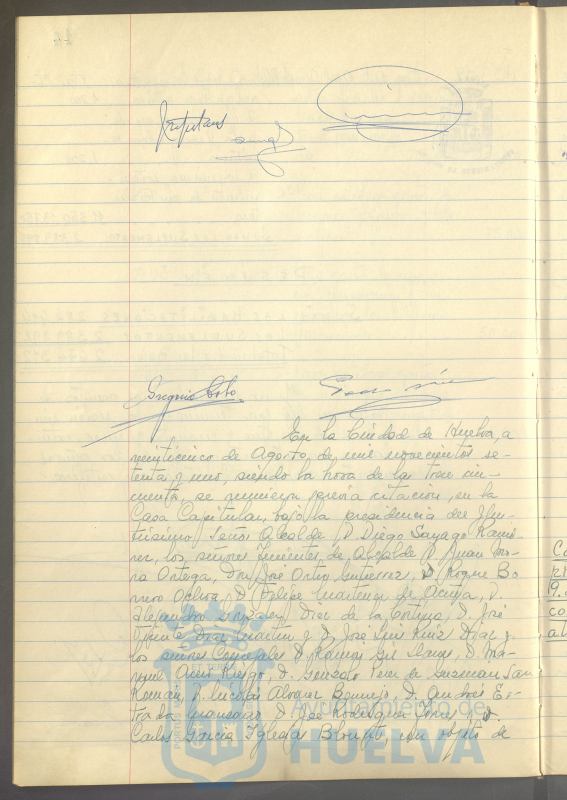 Gregorio Cobo
En la Ciudad de Huelva, a
veinticinco de Agosto, de mil novecientos se-
tenta y uno, siendo la hora de las trece cin-
cuenta, se reunieron previa citación, en la
Casa Capitular, bajo la presidencia del Ilus-
trísimo Señor Alcalde D. Diego Sayago Ramí-
rez, los señores Tenientes de Alcalde D. Juan Mo-
ra Ortega, Don José Ortiz Gutiérrez, D. Roque Bo-
rrero Ochoa, D. Felipe Martínez de Acuña, D.
Alejandro Díaz de la Cortina, D. José
Vicente Díaz Martín y D. José Luis Ruiz Díaz y
los señores Concejales D. Ramón Gil D. Ma-
nuel D. Gonzalo Pérez de Guzmán San
Román, D. Nicolás Alvarez Bermejo, D. Andrés Es-
trada D. José Rodríguez y D.
Carlos García Iglesias con objeto de
Ayuntamiento de
HUELVA